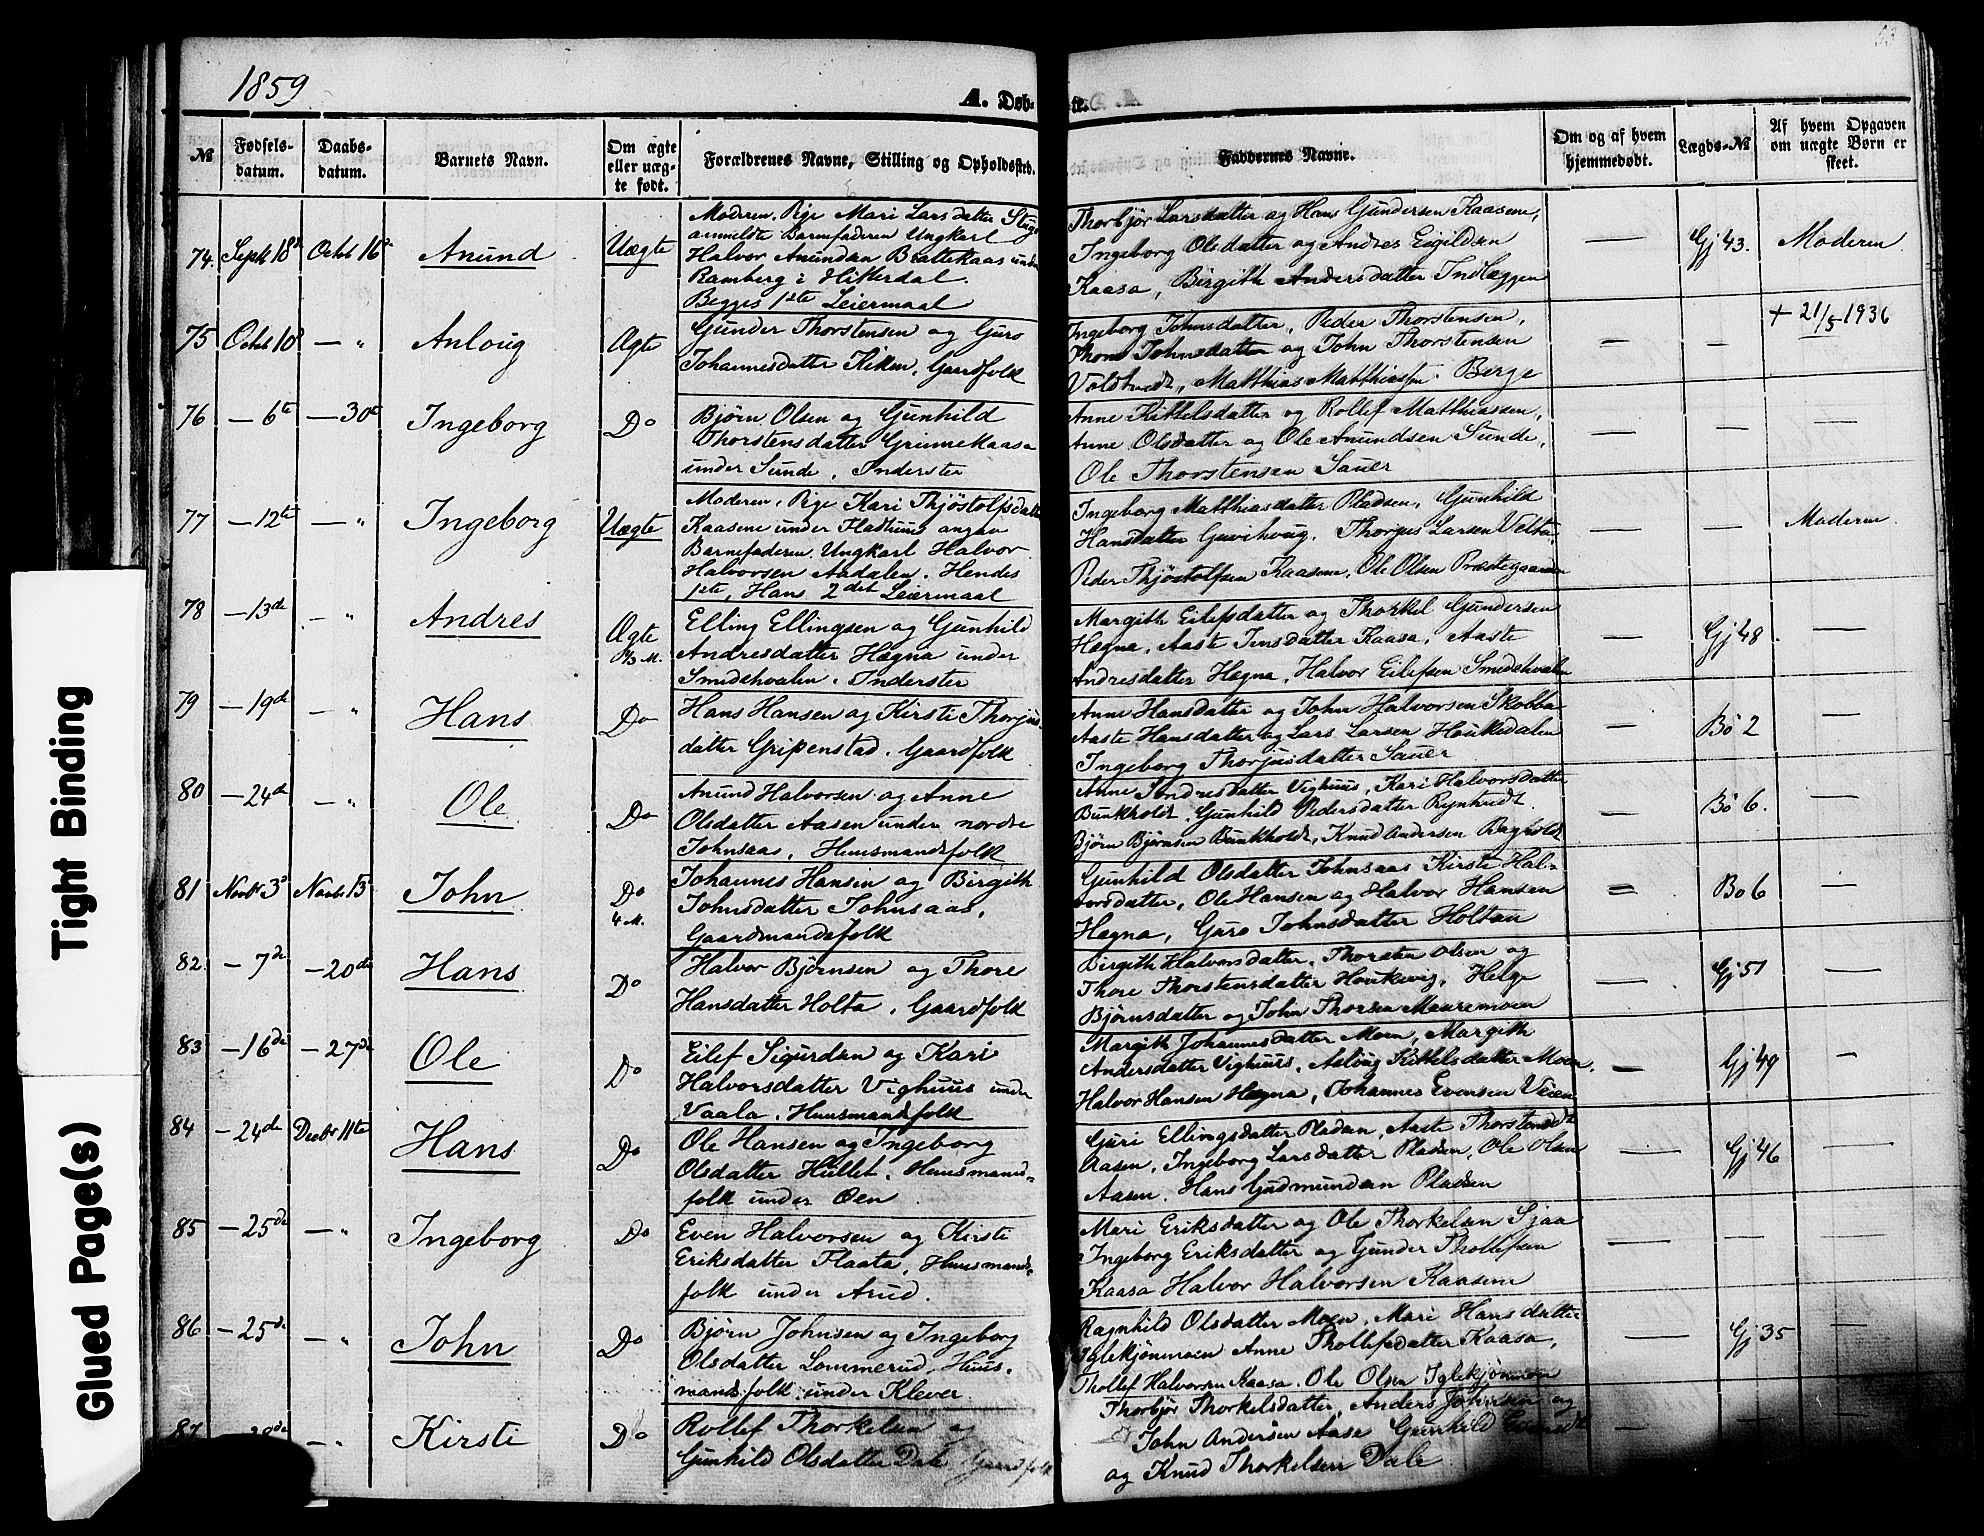 53
1859
A. Døb-
te.
№ Fødsels-datum. Daabs-datum. Barnets Navn. Om ægte eller uæg-te født. Forældrenes Navne, Stilling og Opholdssted. Faddernes Navne. Om og af hvem hjemmedøbt. Lægds-№ Af hvem Opgaven om uægte Børn er skeet.
74. Septr 18de Octbr 16de Anund Uægte
Moderen, Pige Mari Larsdatter
anmeldte Barnefaderen Ungkarl
Halvor Anundsen Brattekaas under
Ramberg i Hitterdal.
Begges 1ste Leiermaal
Thorbjør Larsdatter og Hans Gundersen Kaasene,
Ingeborg Olsdatter og Andres Eigildsen
Kaasa, Birgith Andersdatter Indlæggen
— Gj 43. Moderen
75 Octbr 10 — „ Anloug Ægte
Gunder Thorstensen og Guro
Johannesdatter Kiken, Gaardfolk
Ingeborg Johnsdatter, Peder Thorstensen,
Thone Johnsdatter og John Thorstensen
Voldtvedt, Matthias Matthiassen Berge
— — + 21/5 1936
76 — 6te — 30te Ingeborg Do
Bjørn Olsen og Gunhild
Thorstensdatter Grinnekaasa
under Sunde, Inderster
Anne Kittelsdatter og Rollef Matthiassen,
Anne Olsdatter og Ole Anundsen Sunde,
Ole Thorstensen Sauer
— — —
77 — 12te — „ Ingeborg Uægte
Moderen, Pige Kari Thjøstolfsdatter
Kaasene under Hadhuus angav
Barnefaderen, Ungkarl Halvor
Halvorsen Aadalen. Hendes
1ste, Hans 2det Leiermaal
Ingeborg Matthiasdatter Pladsen, Gunhild
Hansdatter Guvihoug, Thorgus Larsen Velta,
Peder Thjøstolfsen Kaasene, Ole Olsen Præstegaarden
— — Moderen
78 — 13de — „ Andres Ægte
8/3 M.
Elling Ellingsen og Gunhild
Andresdatter Hægna under
Smidehvalen. Inderster
Margith Eilefsdatter og Thorkel Gundersen
Hægna, Aaste Jensdatter Kaasa, Aaste
Andresdatter Hægna, Halvor Eilefsen Smidehvalen
— Gj 48. —
79 — 19de — „ Hans Do
Hans Hansen og Kirsti Thorjus-
datter Gripenstad. Gaardfolk
Anne Hansdatter og John Halvorsen Skobba
Aaste Hansdatter og Lars Larsen Houkedalen
Ingeborg Thorjusdatter Sauer
— Bø 2 —
80 — 24de — „ Ole Do
Anund Halvorsen og Anne
Olsdatter Aasen under nordre
Johnsaas, Huusmandsfolk
Anne Sondresdatter Vighuus, Kari Halvorsdatter
Bunkholdt, Gunhild Pedersdatter Ryntvedt.
Bjørn Bjørnsen Bunkholdt, Knud Andersen Bagholdt
— Bø 6. —
81 Novbr 3de Novbr 13 John Do
4 M.
Johannes Hansen og Birgith
Johnsdatter Johnsaas,
Gaardmandsfolk
Gunhild Olsdatter Johnsaas Kirsti Hal-
vorsdatter, Ole Hansen og Halvor Hansen
Hægna, Guro Johnsdatter Holtan
— Bø 6 —
82. — 7de — 20de Hans Do
Halvor Bjørnsen og Thore
Hansdatter Holta, Gaardfolk
Birgith Halvorsdatter, Thorsten Olsen og
Thore Thorstensdatter Houkevig, Helge
Bjørnsdatter og John Thorsen Mauremoen
— Gj 51 —
83 — 16de — 27de Ole Do
Eilef Sigurdsen og Kari
Halvorsdatter Vighuus under
Vaala, Huusmandsfolk
Margith Johannesdatter Moen, Margith
Andersdatter Vighuus, Aslaug Kittelsdatter Moen,
Halvor Hansen Hægna, Johannes Evensen Veien
— Gj 49 —
84 — 24de Decbr 11te Hans Do
Ole Hansen og Ingeborg
Olsdatter Hullet, Huusmands-
folk under Øen
Guri Ellingsdatter Pladsen, Aaste Thorstensdt
Aasen, Ingeborg Larsdatter Pladsen, Ole Olsen
Aasen, Hans Gudmundsen Pladsen
— Gj 46 —
85 — 25de — „ Ingeborg Do
Even Halvorsen og Kirsti
Eriksdatter Flaata, Huusmands-
folk under Arud.
Mari Eriksdatter og Ole Thorkelsen Sjaa
Ingeborg Eriksdatter og Gunder Thollefsen
Kaasa Halvor Halvorsen Kaasene
— — —
86 — 25de — „ John Do
Bjørn Johnsen og Ingeborg
Olsdatter Lommerud, Huus-
mandsfolk under Klever
Ragnhild Olsdatter Moen, Mari Hansdatter
Iglekjønmoen Anne Thollefsdatter Kaasa,
Thollef Halvorsen Kaasa, Ole Olsen Iglekjønmoen
— Gj 35 —
87 — 28de — „ Kirsti Do
Rollef Thorkelsen og
Gunhild Olsdatter Dale Gaardfolk
Thorbjør Thorkelsdatter, Anders Johnsen og
John Andersen Aase Gunhild
og Knud Thorkelsen Dale
— — —
Tight Binding
Glued Page(s)